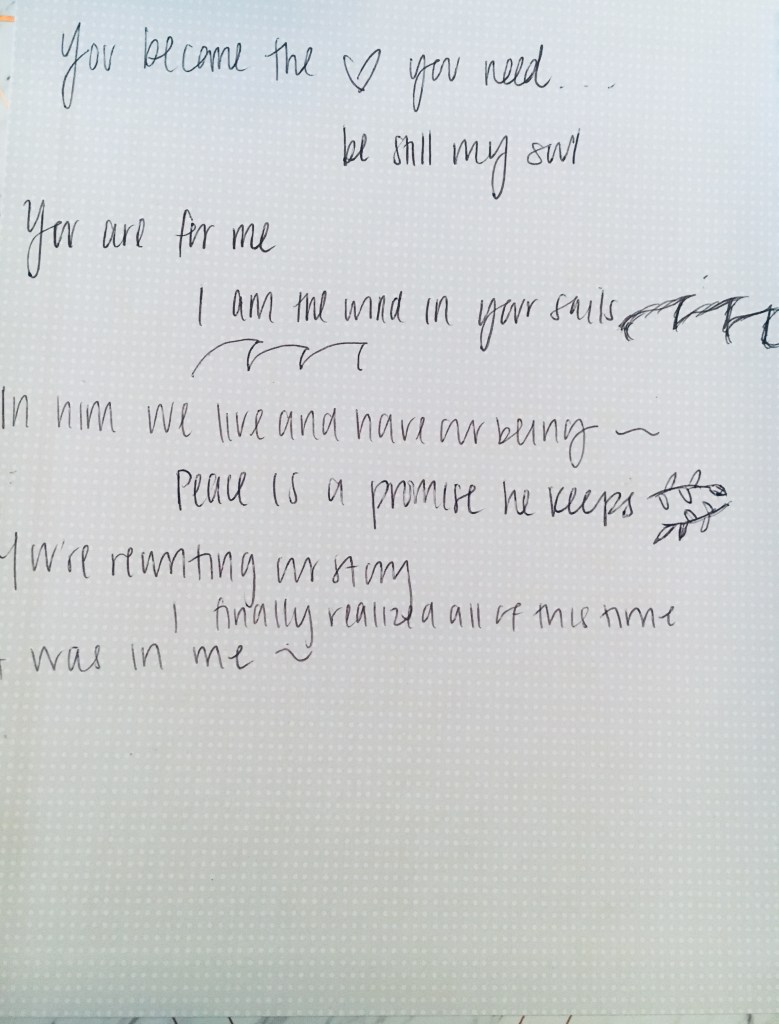 You become the ♡ you need....
be still my soul
You are for me
I am the wind in your sails
In him we live and have our being ~
Peace is a promise he keeps
You're rewriting our story
I finally realized all of this time
was in me ~